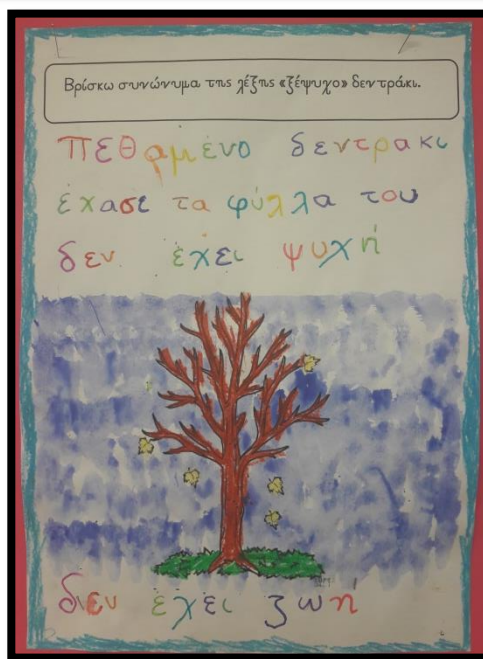 Βρίσκω συνώνυμα της λέξης «ξέψυχο» δεντράκι.
πεθαμένο δεντρακι
έχασε τα φύλλα του
δεν έχει ψυχή
δεν έχει ζωή